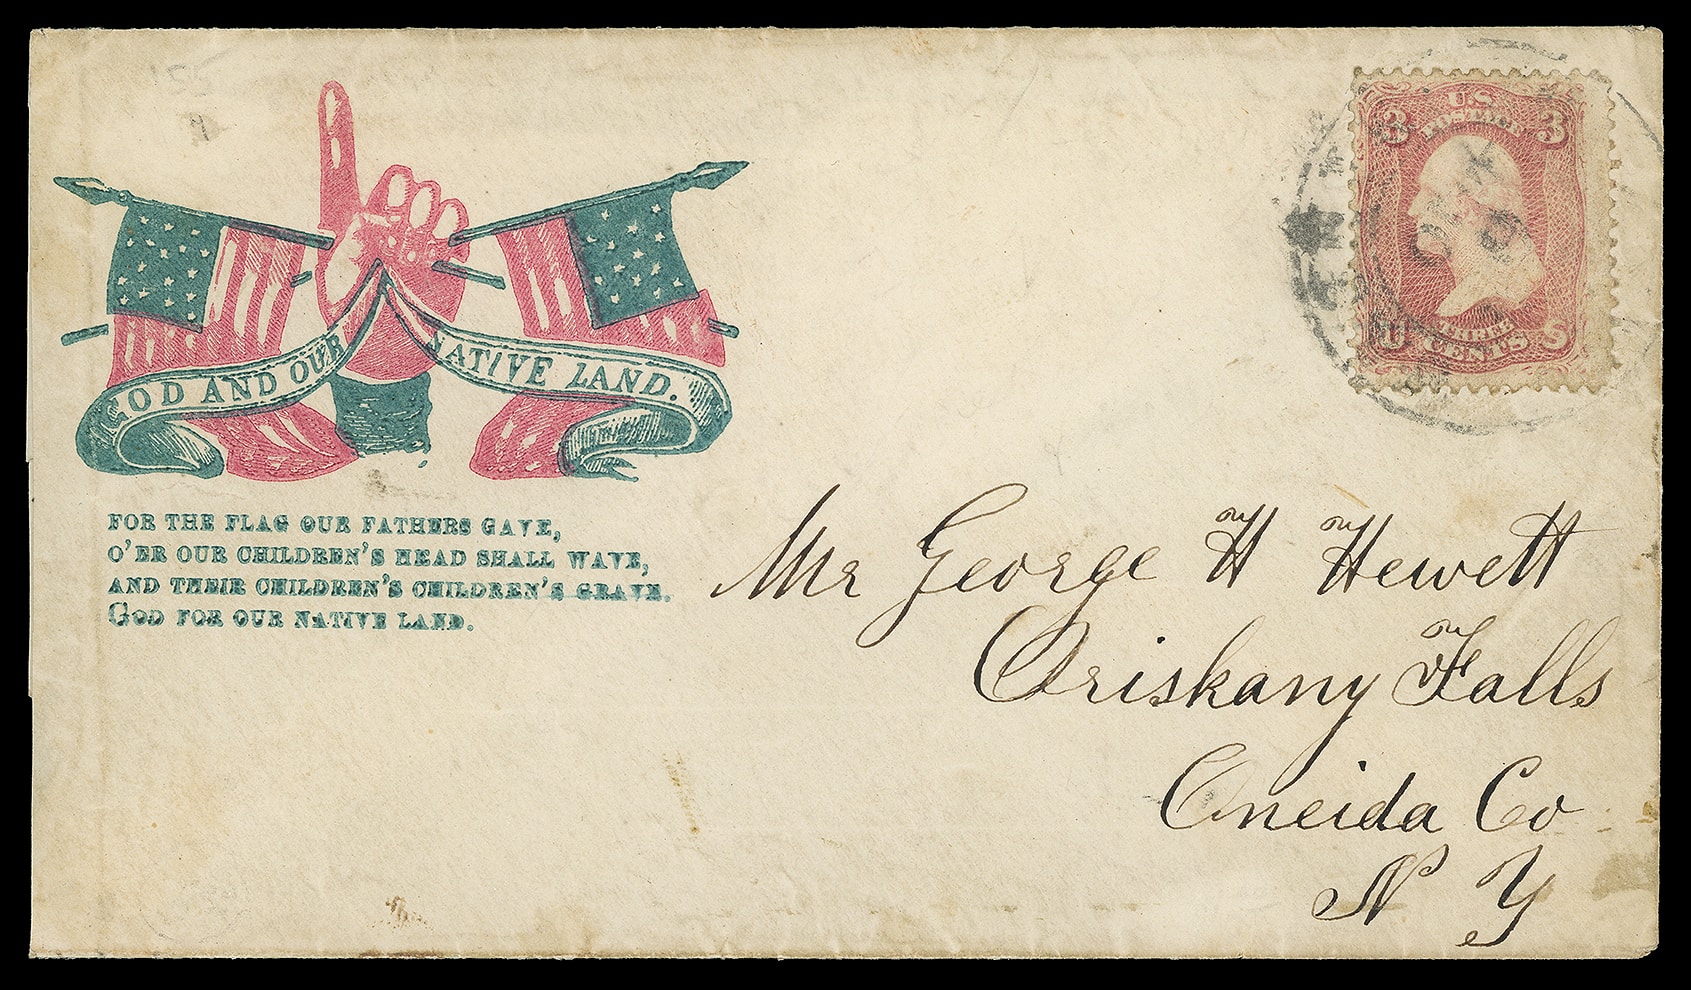 GOD AND OUR NATIVE LAND.
FOR THE FLAG OUR FATHERS GAVE,
O'ER OUR CHILDREN'S HEAD SHALL WAVE,
AND THEIR CHILDREN'S CHILDREN'S GRAVE.
GOD FOR OUR NATIVE LAND.
U.S.
POSTAGE
3 3
THREE
CENTS
U S
Mr George H Hewett
Oriskany Falls
Oneida Co
N Y